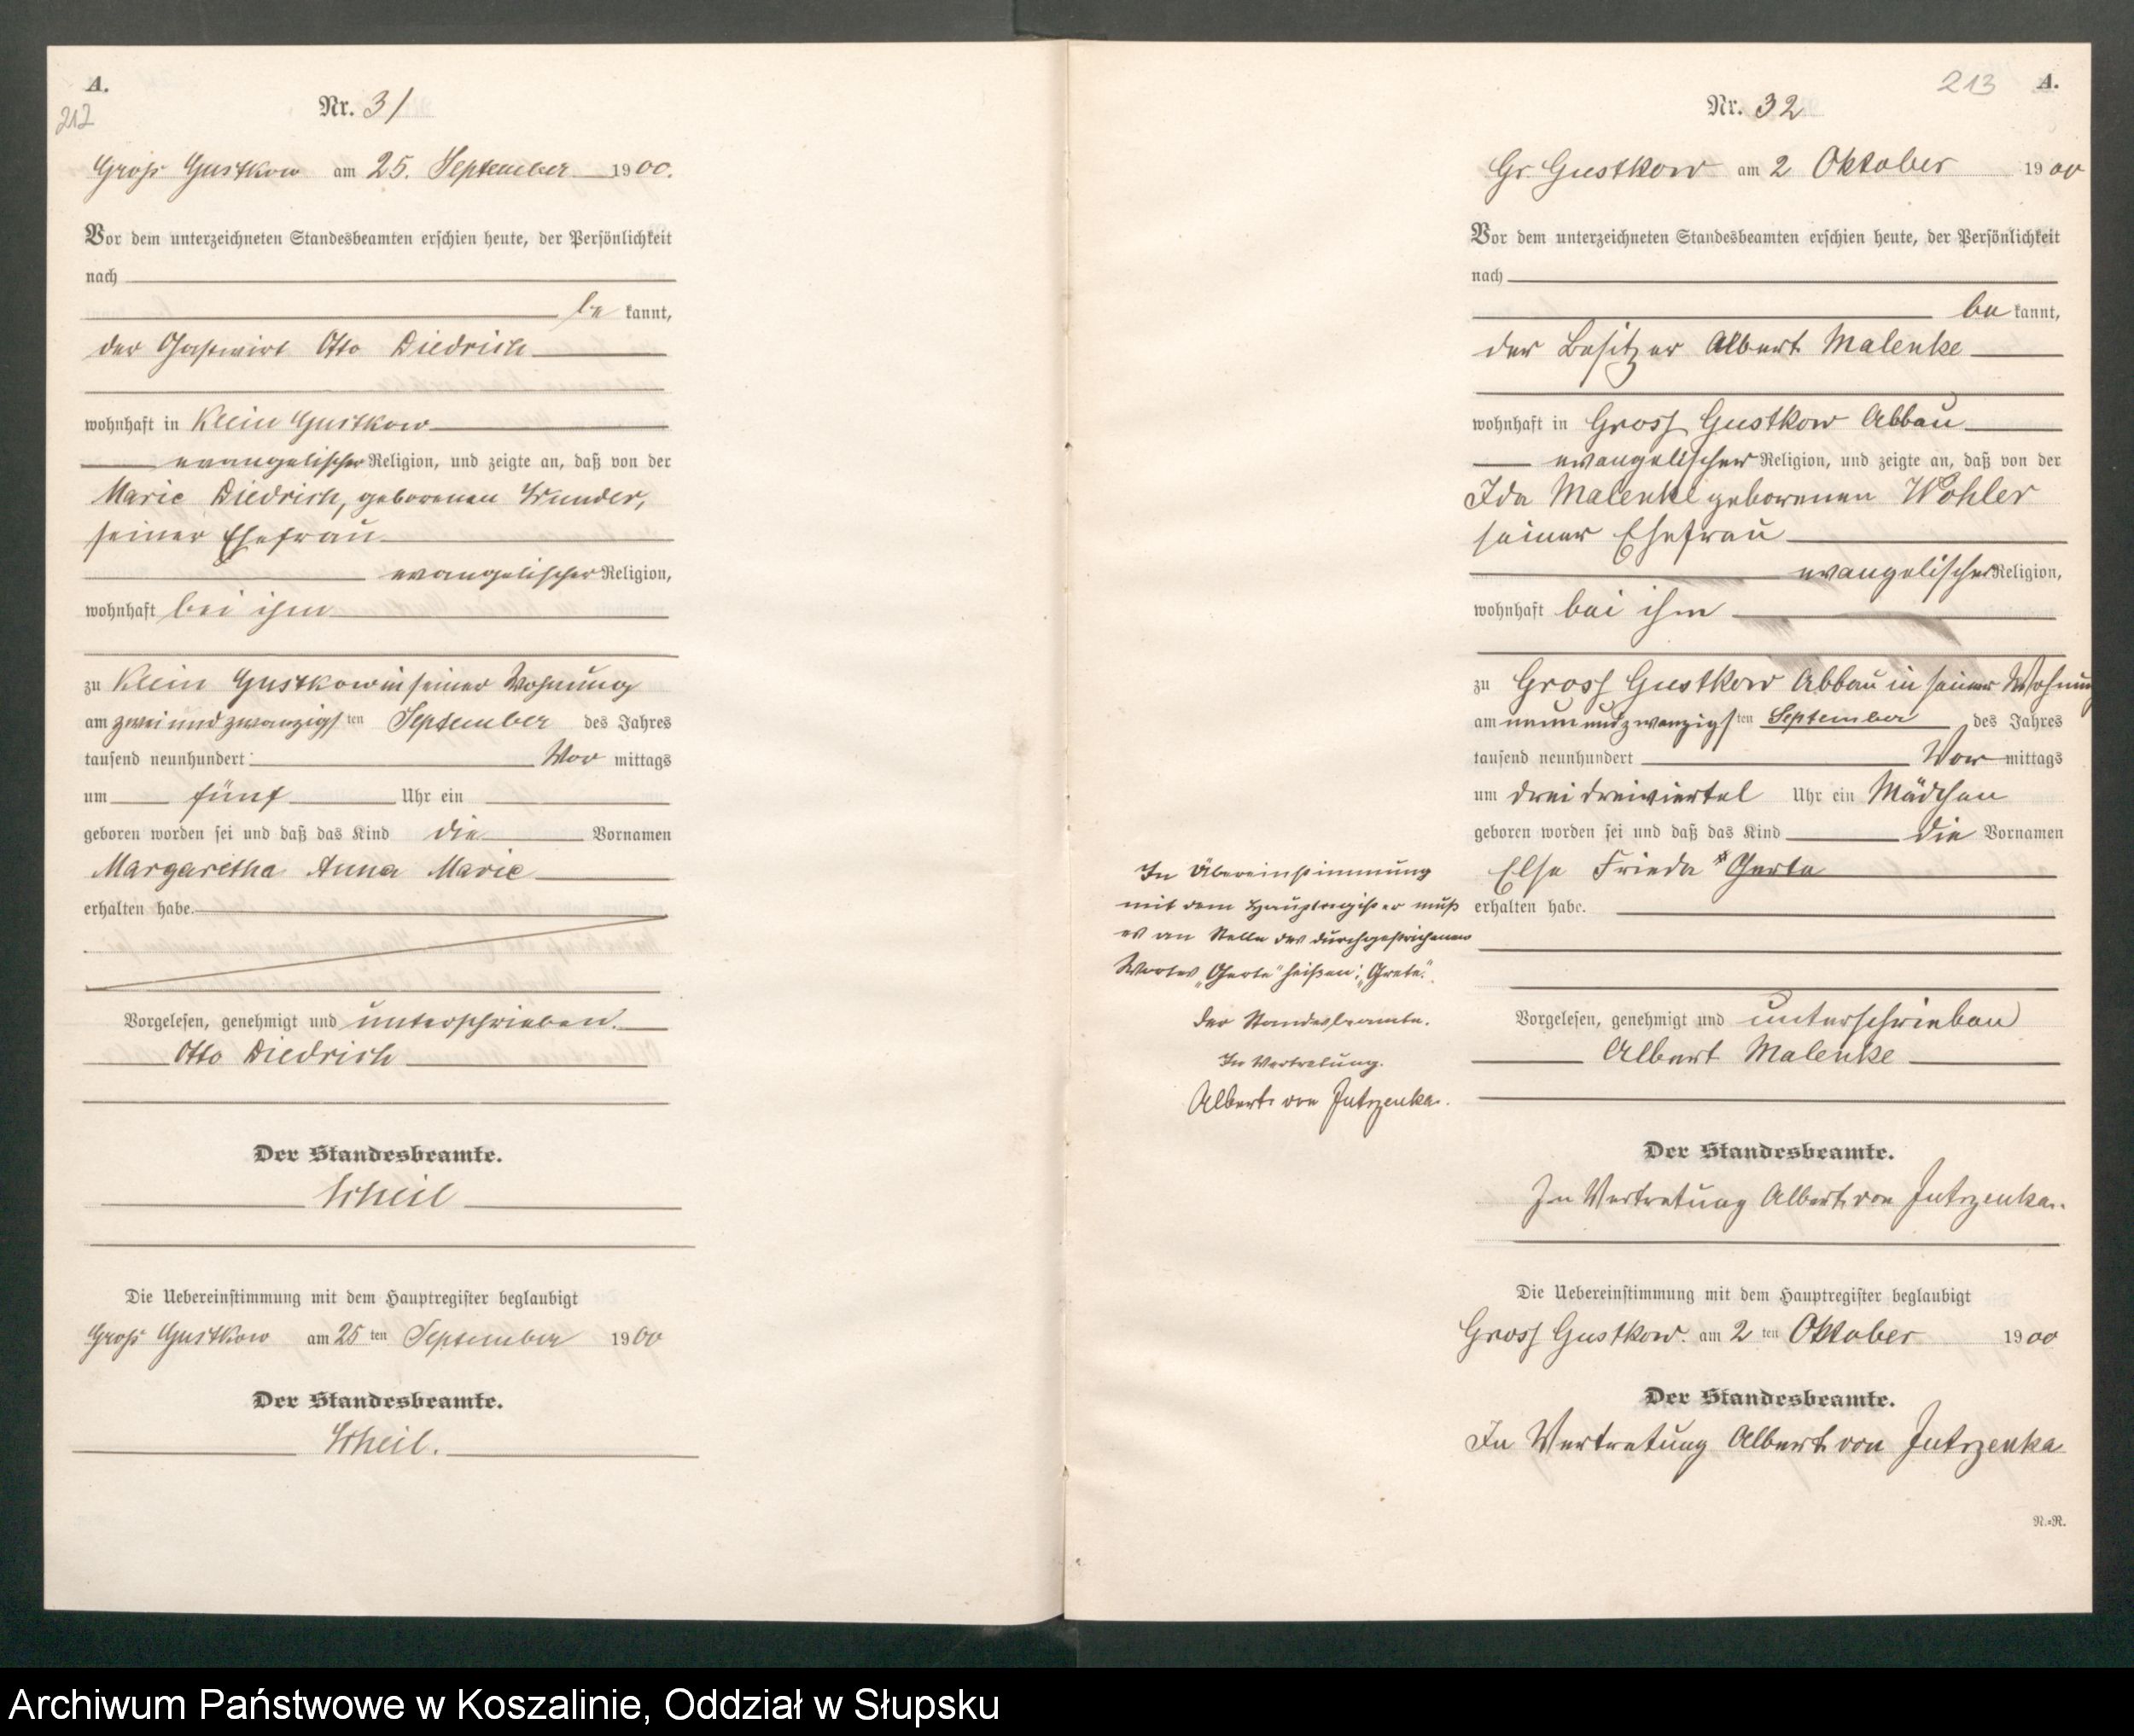 A.
212
Nr. 31
Gross Gustkow am 25. September 1900.
Vor dem unterzeichneten Standesbeamten erschien heute, der Persönlichkeit
nach
be kannt,
der Gastwirt Otto Diedrich
wohnhaft in Klein Gustkow
evangelischer Religion, und zeigte an, daß von der
Marie Diedrich, geborenen
seiner Ehefrau
evangelischer Religion,
wohnhaft bei ihm
zu Klein Gustkow in seiner Wohnung
am zweiundzwanzigsten September des Jahres
tausend neunhundert Vor mittags
um fünf Uhr ein
geboren worden sei und daß das Kind die Vornamen
Margaretha Anna Marie
erhalten habe.
Vorgelesen, genehmigt und unterschrieben.
Otto Diedrich
Der Standesbeamte.
Scheil
Die Uebereinstimmung mit dem Hauptregister beglaubigt
Gross Gustkow am 25 ten September 1900
Der Standesbeamte.
Scheil.
213 A.
Nr. 32
Gr. Gustkow am 2 Oktober 1900
Vor dem unterzeichneten Standesbeamten erschien heute, der Persönlichkeit
nach
be kannt,
der Besitzer Albert Malenke
wohnhaft in Gross Gustkow Abbau
evangelischer Religion, und zeigte an, daß von der
Ida Malenke geborenen Wohler
seiner Ehefrau
evangelischer Religion,
wohnhaft bei ihm
zu Gross Gustkow Abbau in seiner Wohnung
am neunundzwanzigsten September des Jahres
tausend neunhundert Vor mittags
um drei dreiviertel Uhr ein Mädchen
geboren worden sei und daß das Kind die Vornamen
Else Frieda * Gerte
erhalten habe.
In Übereinstimmung
mit dem Hauptregister muß
es an Stelle des durchgestrichenen
Wortes „Gerte" heißen: „Grete".
Der Standesbeamte.
In Vertretung.
Albert von Jutrzenka.
Vorgelesen, genehmigt und unterschrieben
Albert Malenke
Der Standesbeamte.
In Vertretung Albert von Jutrzenka.
Die Uebereinstimmung mit dem Hauptregister beglaubigt
Gross Gustkow. am 2 ten Oktober 1900
Der Standesbeamte.
In Vertretung Albert von Jutrzenka
N.=R.
Archiwum Państwowe w Koszalinie, Oddział w Słupsku